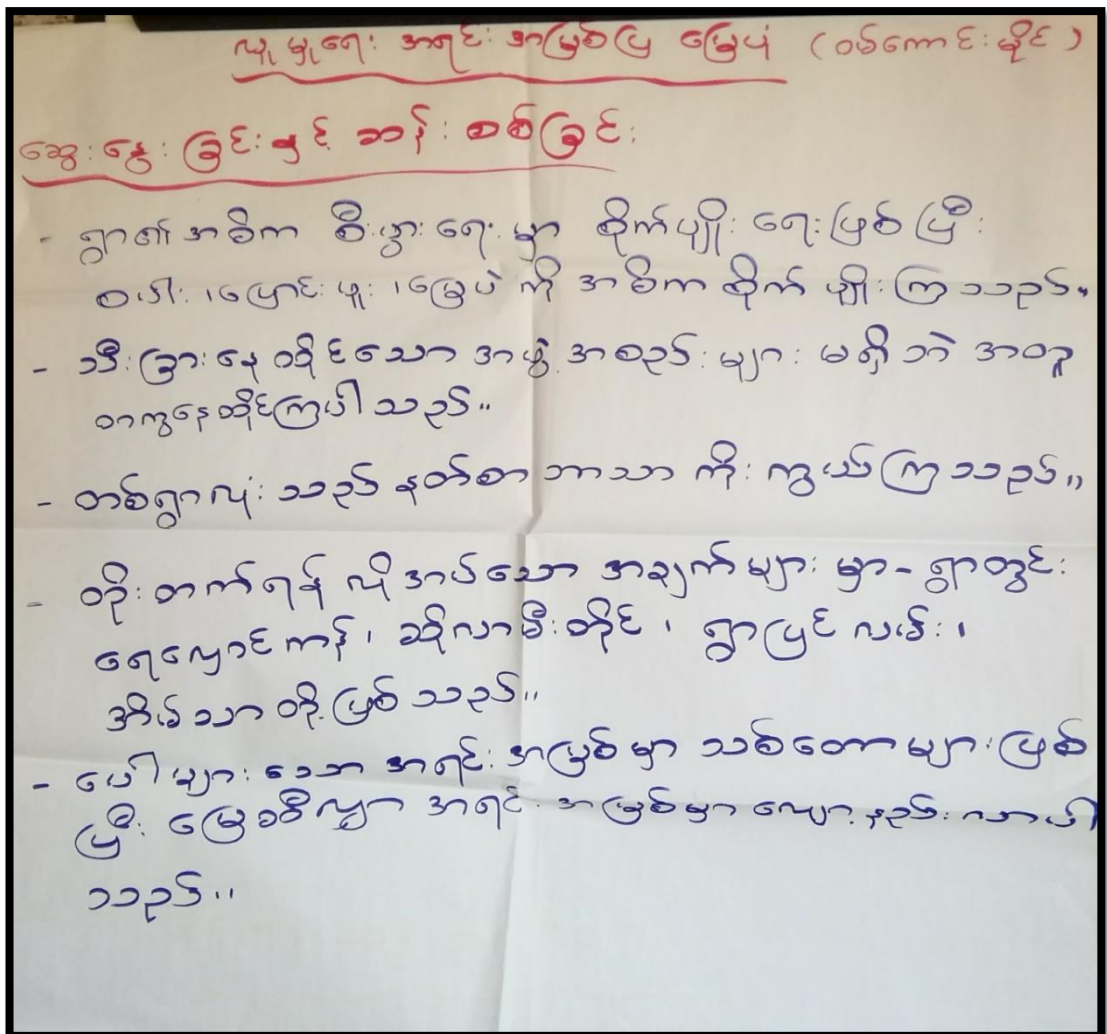 လူမှုရေး အရင်းအမြစ်ပြ မြေပုံ (ဝမ်ကောင်းမိုင်)
ဆွေးနွေးခြင်းနှင့် ဆန်းစစ်ခြင်း
- ရွာ၏အဓိက စီးပွားရေးမှာ စိုက်ပျိုးရေးဖြစ်ပြီး
စပါး၊ ပြောင်းဖူး၊ မြေပဲ ကို အဓိကစိုက်ပျိုးကြသည်။
- သီးခြားနေထိုင်သော အဖွဲ့အစည်းများ မရှိဘဲ အတူ
တကွနေထိုင်ကြပါသည်။
- တစ်ရွာလုံးသည် နတ်စာ ဘာသာ ကိုးကွယ်ကြသည်။
- တိုးတက်ရန် လိုအပ်သော အချက်များမှာ - ရွာတွင်း
ရေလှောင်ကန်၊ ဆိုလာမီးတိုင်၊ ရွာပြင်လမ်း၊
အိမ်သာ တို့ဖြစ်သည်။
- ပေါများသော အရင်းအမြစ်မှာ သစ်တောများဖြစ်
ပြီး မြေဆီလွှာ အရင်းအမြစ်မှာ လျော့နည်းလာပါ
သည်။